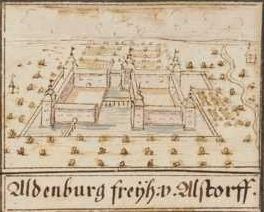 Aldenburg freÿh: v. Alstorff.